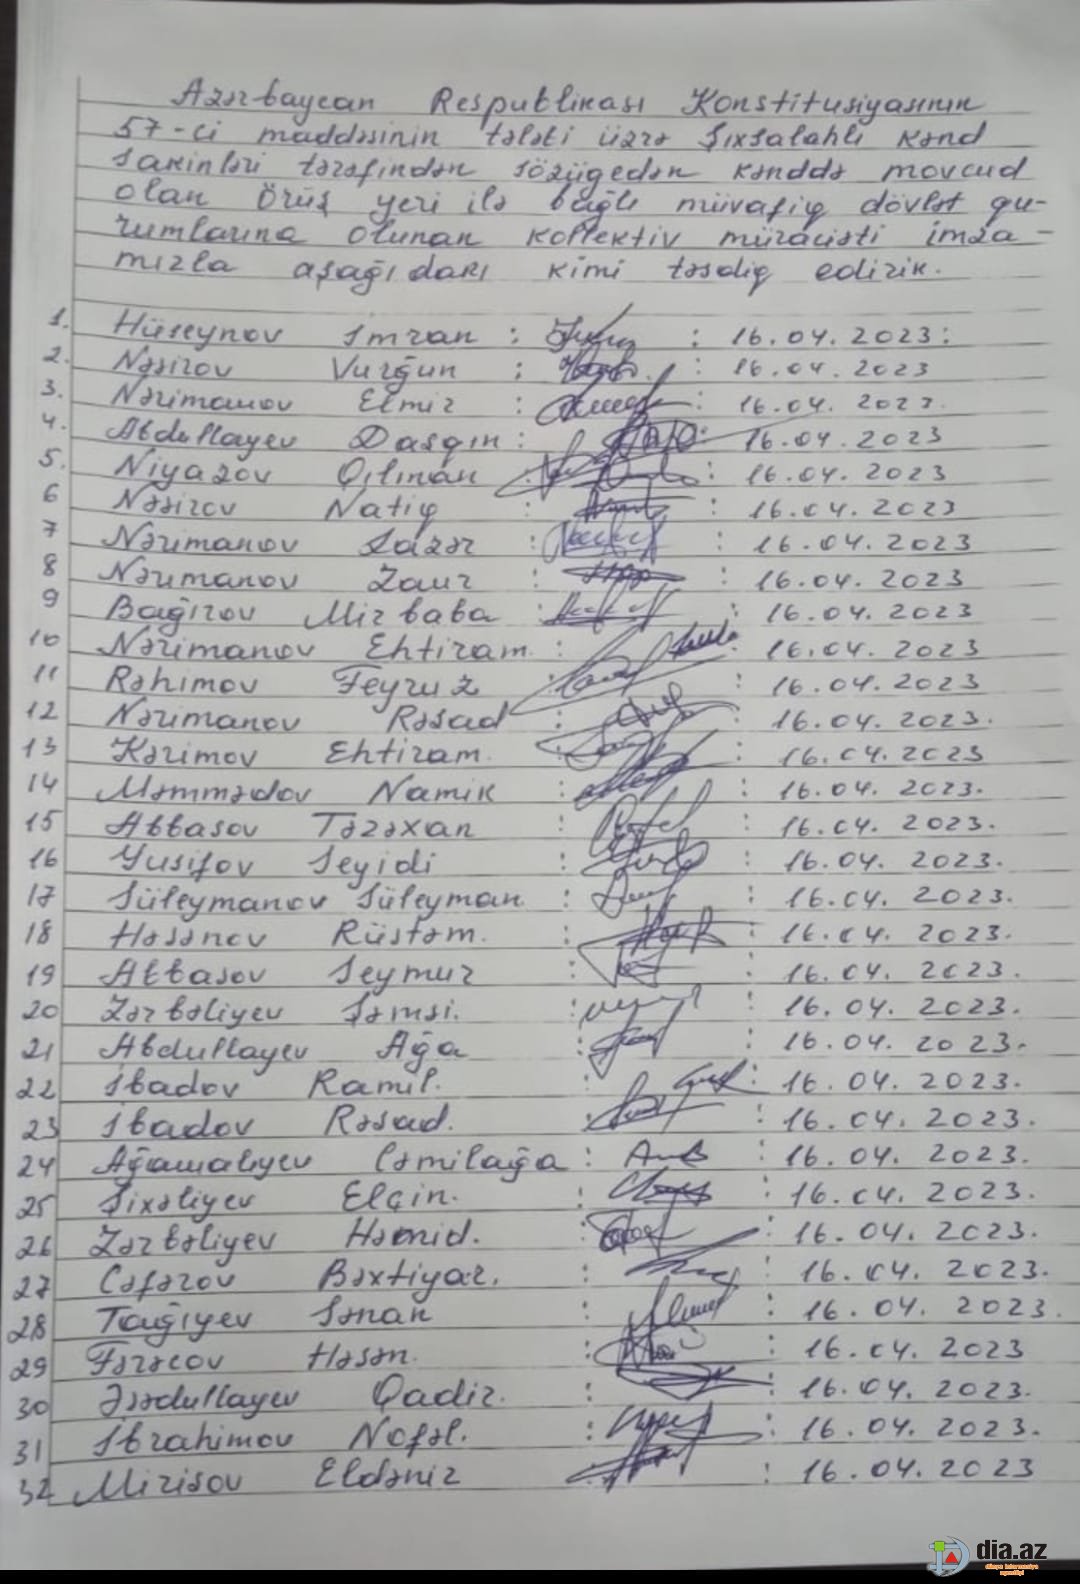 Azərbaycan Respublikası Konstitusiyasının
57-ci maddəsinin tələbi üzrə Şıxsalahlı kənd
sakinləri tərəfindən sözügedən kənddə movcud
olan örüş yeri ilə bağlı müvafiq dövlət qu-
rumlarına olunan kollektiv müraciəti imza-
mızla aşağıdakı kimi təsdiq edirik.
1. Hüseynov İmran : : 16.04.2023:
2. Nəsirov Vurğun : : 16.04.2023
3. Nərimanov Elmir : : 16.04.2023.
4. Abdullayev Daşqın : : 16.04.2023
5. Niyazov Qılman : 16.04.2023
6 Nəsirov Natiq : : 16.04.2023
7 Nərimanov : 16.04.2023
8 Nərimanov Zaur : : 16.04.2023
9 Bağırov Mirbaba : : 16.04.2023
10 Nərimanov Ehtiram. : : 16.04.2023
11 Rəhimov Feyruz : : 16.04.2023
12 Nərimanov Rəşad : : 16.04.2023.
13 Kərimov Ehtiram. : 16.04.2023
14 Məmmədov Namik : : 16.04.2023.
15 Abbasov Təzəxan : : 16.04.2023.
16 Yusifov Seyidi : : 16.04.2023.
17 Süleymanov Süleyman : : 16.04.2023.
18 Həsənov Rüstəm. : : 16.04.2023.
19 Abbasov Seymur : : 16.04.2023.
20 Zərbəliyev Şəmsi. : : 16.04.2023.
21 Abdullayev Ağa : : 16.04.2023.
22 İbadov Ramil. : 16.04.2023.
23 İbadov Rəşad. : 16.04.2023.
24 Ağamalıyev Cəmilağa : : 16.04.2023.
25 Şıxəliyev Elçin. : 16.04.2023.
26 Zərbəliyev Həmid. : 16.04.2023.
27 Cəfərov Bəxtiyar. : 16.04.2023.
28 Tağıyev Sənan : 16.04.2023.
29 Fərəcov Həsən. : : 16.04.2023
30 Əsədullayev Qadir. : : 16.04.2023.
31 İbrahimov Nofəl. : : 16.04.2023.
32 Mirişov Eldəniz : 16.04.2023
dia.az